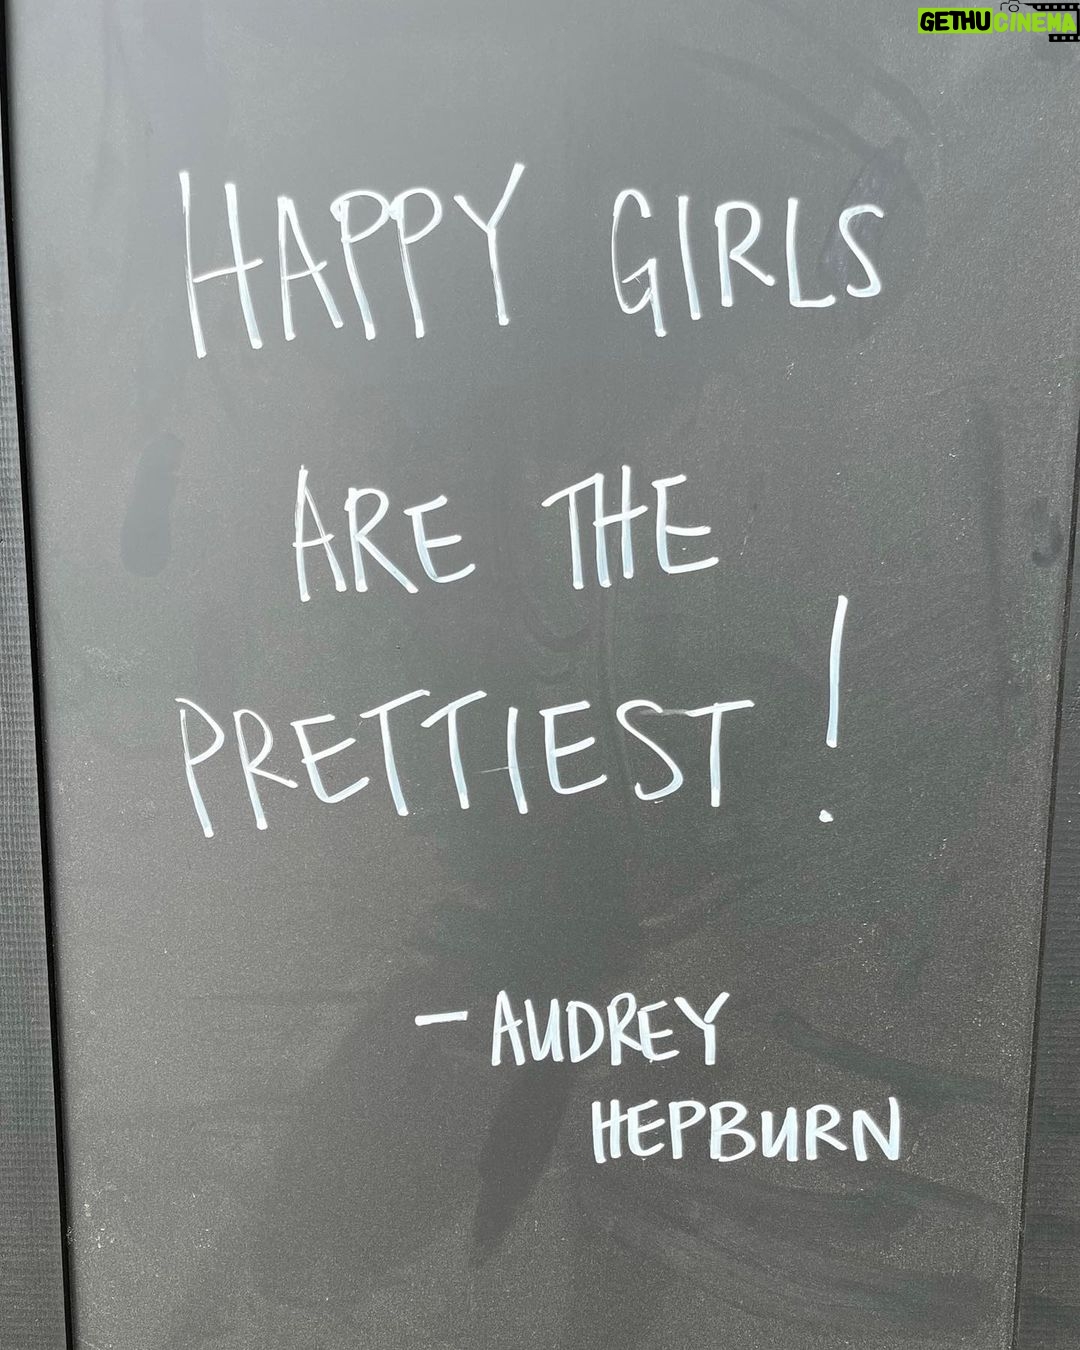 GETHUCINEMA
HAPPY GIRLS
ARE THE
PRETTIEST!
- AUDREY
HEPBURN